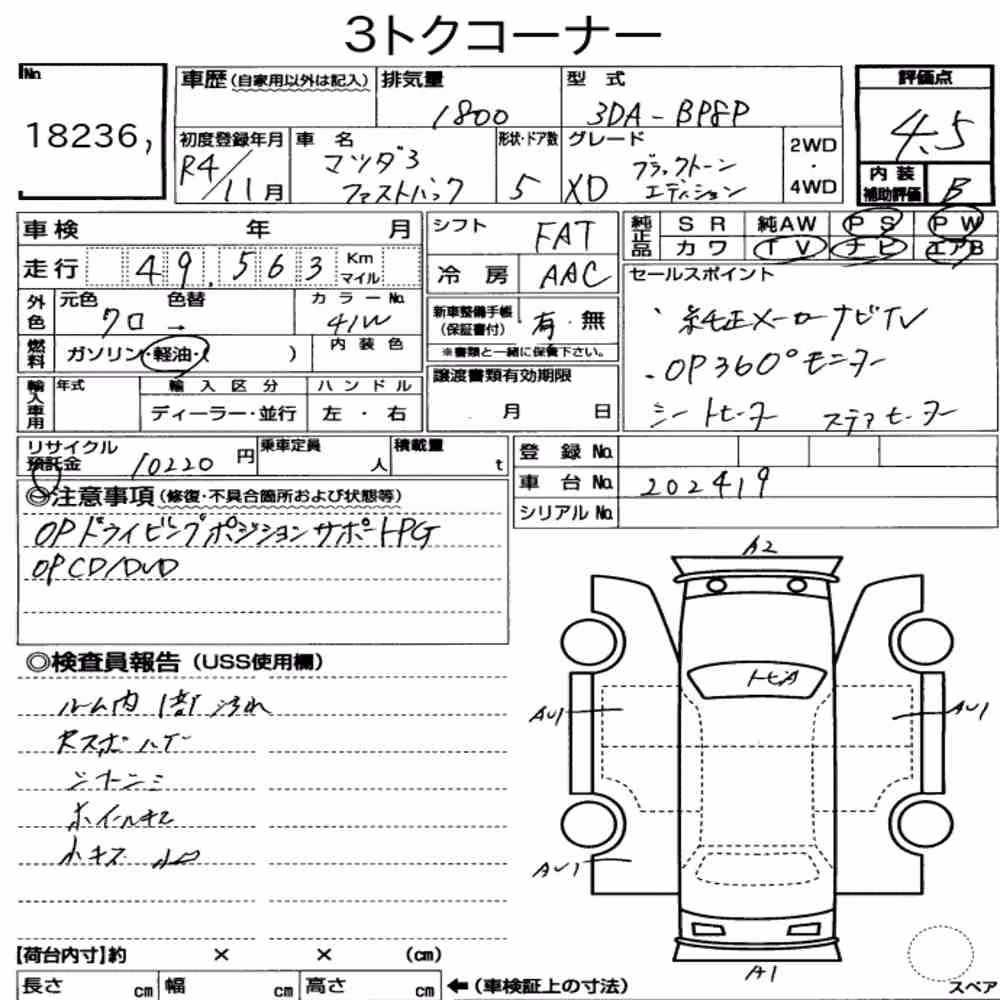 3トクコーナー
No.
18236,
車歴(自家用以外は記入)
排気量
1800
型 式
3DA-BP8P
評価点
4.5
初度登録年月
R4/11月
車 名
マツダ3
ファストバック
形状・ドア数
5
グレード
XD
ブラックトーン
エディション
2WD
・
4WD
内 装
補助評価
B
車検 年 月
走行 49,563 Km
マイル
シフト
FAT
冷 房
AAC
純正品
SR 純AW PS PW
カワ TV ナビ エアB
外色
元色 色替
クロ →
カラーNo.
41W
燃料
ガソリン・軽油・( )
内 装 色
新車整備手帳
(保証書付)
有・無
※書類と一緒に保管下さい。
セールスポイント
・純正メーカーナビTV
・OP360°モニター
シートヒーター ステアヒーター
輸入車用
年式
輸 入 区 分
ディーラー・並行
ハ ン ド ル
左 ・ 右
譲渡書類有効期限
月 日
リサイクル
預託金
10220 円
乗車定員
人
積載量
t
登 録 No.
車 台 No. 202419
シリアル No.
◎注意事項(修復・不具合箇所および状態等)
OPドライビングポジションサポートPG
OP CD/DVD
◎検査員報告(USS使用欄)
ルーム内 1部 汚れ
ホイールキズ
小キズ 凹
A2
トビA
AU1
AU1
AU1
A1
スペア
【荷台内寸】約 × × (cm)
長さ cm 幅 cm 高さ cm
←(車検証上の寸法)